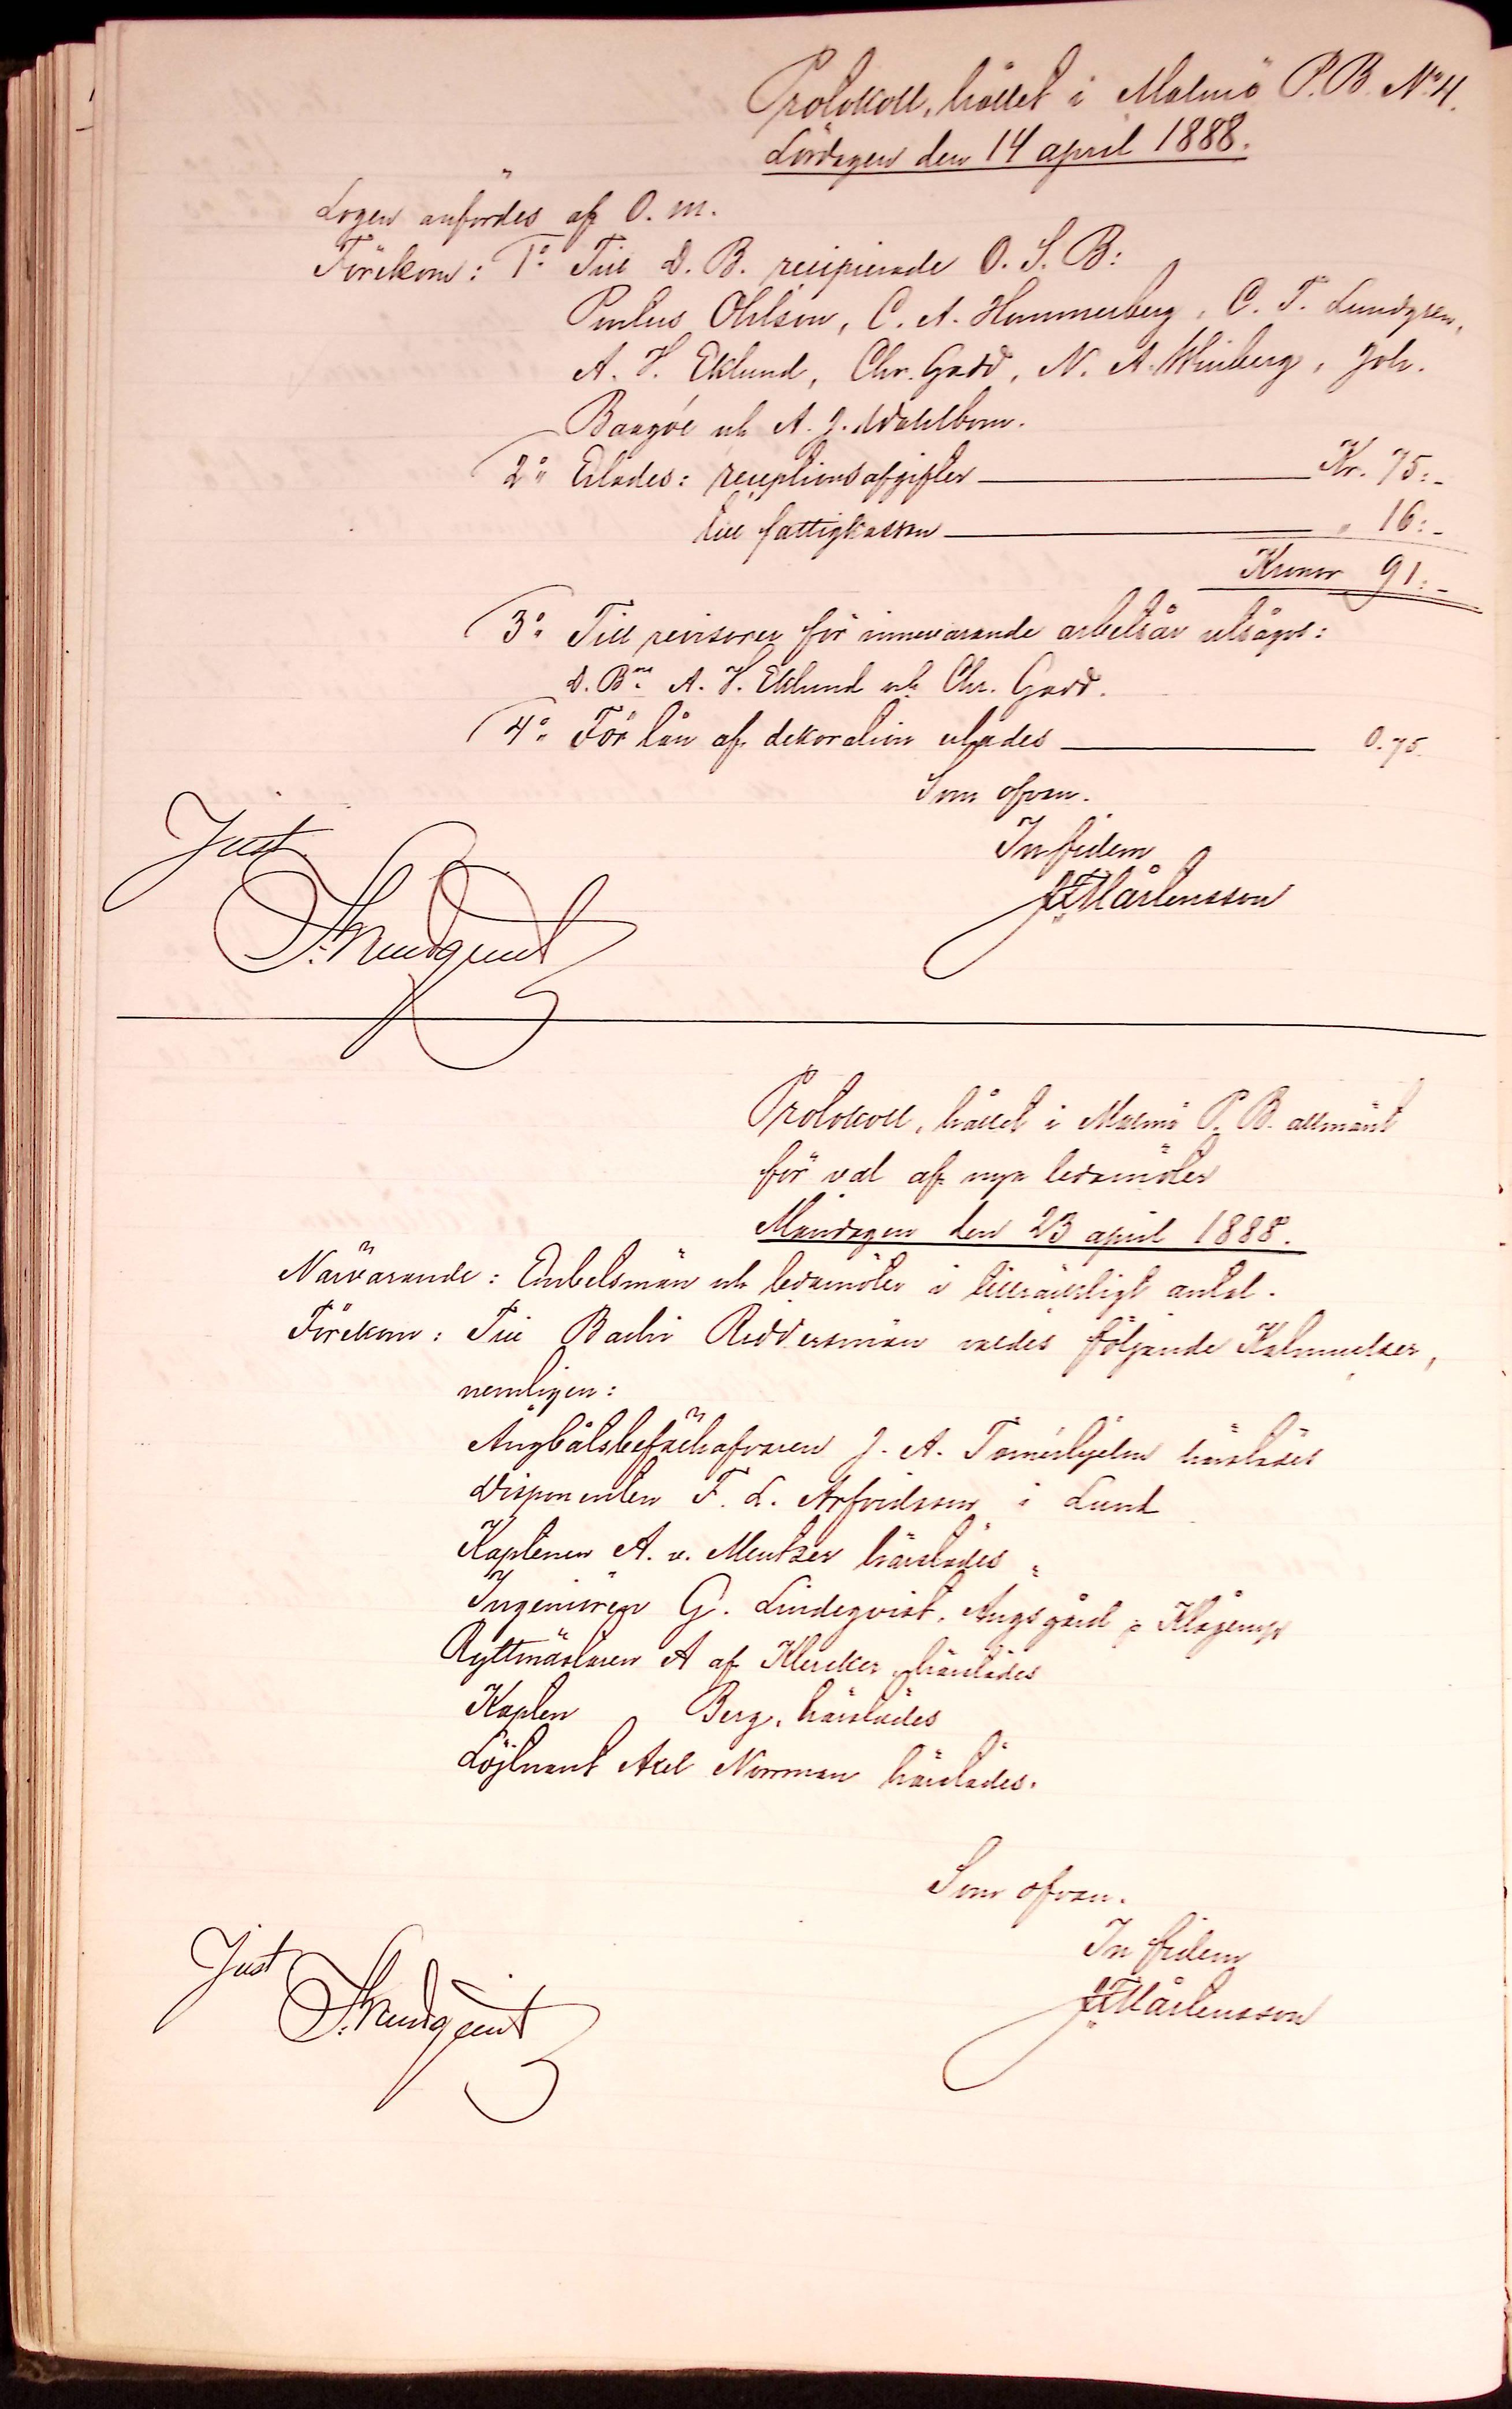 Protokoll, hållet i Malmö P. B. No 4.
Lördagen den 14 april 1888.
Logen anfördes af O. m.
Förekom: 1o Till D. B. recipierade O. S. B:
Paulus Ohlson, C. A. Hammerberg, C. F. Lundgren,
A. H. Eklund, Chr. Gadd, N. A. Winberg, Joh.
Baagöe och A. J. Wahlbom.
2o Erlades: receptionsafgifter Kr. 75:-
till fattigkassan " 16:-
Kronor 91:-
3o Till revisorer för innevarande arbetsår utsågos:
D. Brr A. H. Eklund och Chr. Gadd.
4o För lån af dekoration erlades 0.75.
Som ofvan.
In fidem
Mårtensson
Just.
Protokoll, hållet i Malmö P. B. allmänt
för val af nya ledamöter
Måndagen den 23 april 1888.
Närvarande: Embetsmän och ledamöter i tillräckligt antal.
Förekom: Till Badin Riddersmän valdes följande Kalmucker,
nemligen:
Ångbåtsbefälhafvaren J. A. Tornérhjelm härstädes
Disponenten F. L. Arfvidsson i Lund
Kaptenen A. v. Mentzer härstädes
Ingeniören G. Lindeqvist, Ängsgård p. Klågerup
Ryttmästaren A af Klercker, härstädes
Kapten Berg, härstädes
Löjtnant Axel Norrman härstädes.
Som ofvan.
In fidem
Mårtensson
Just